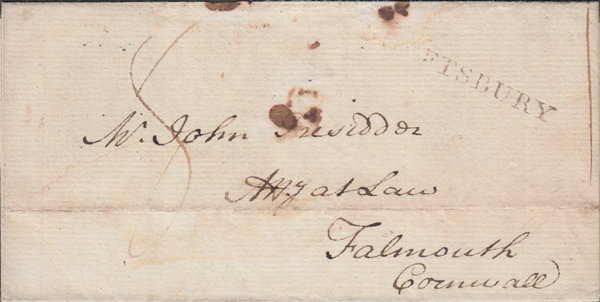 ETSBURY
Mr. John Tresidder
Atty at Law
Falmouth
Cornwall